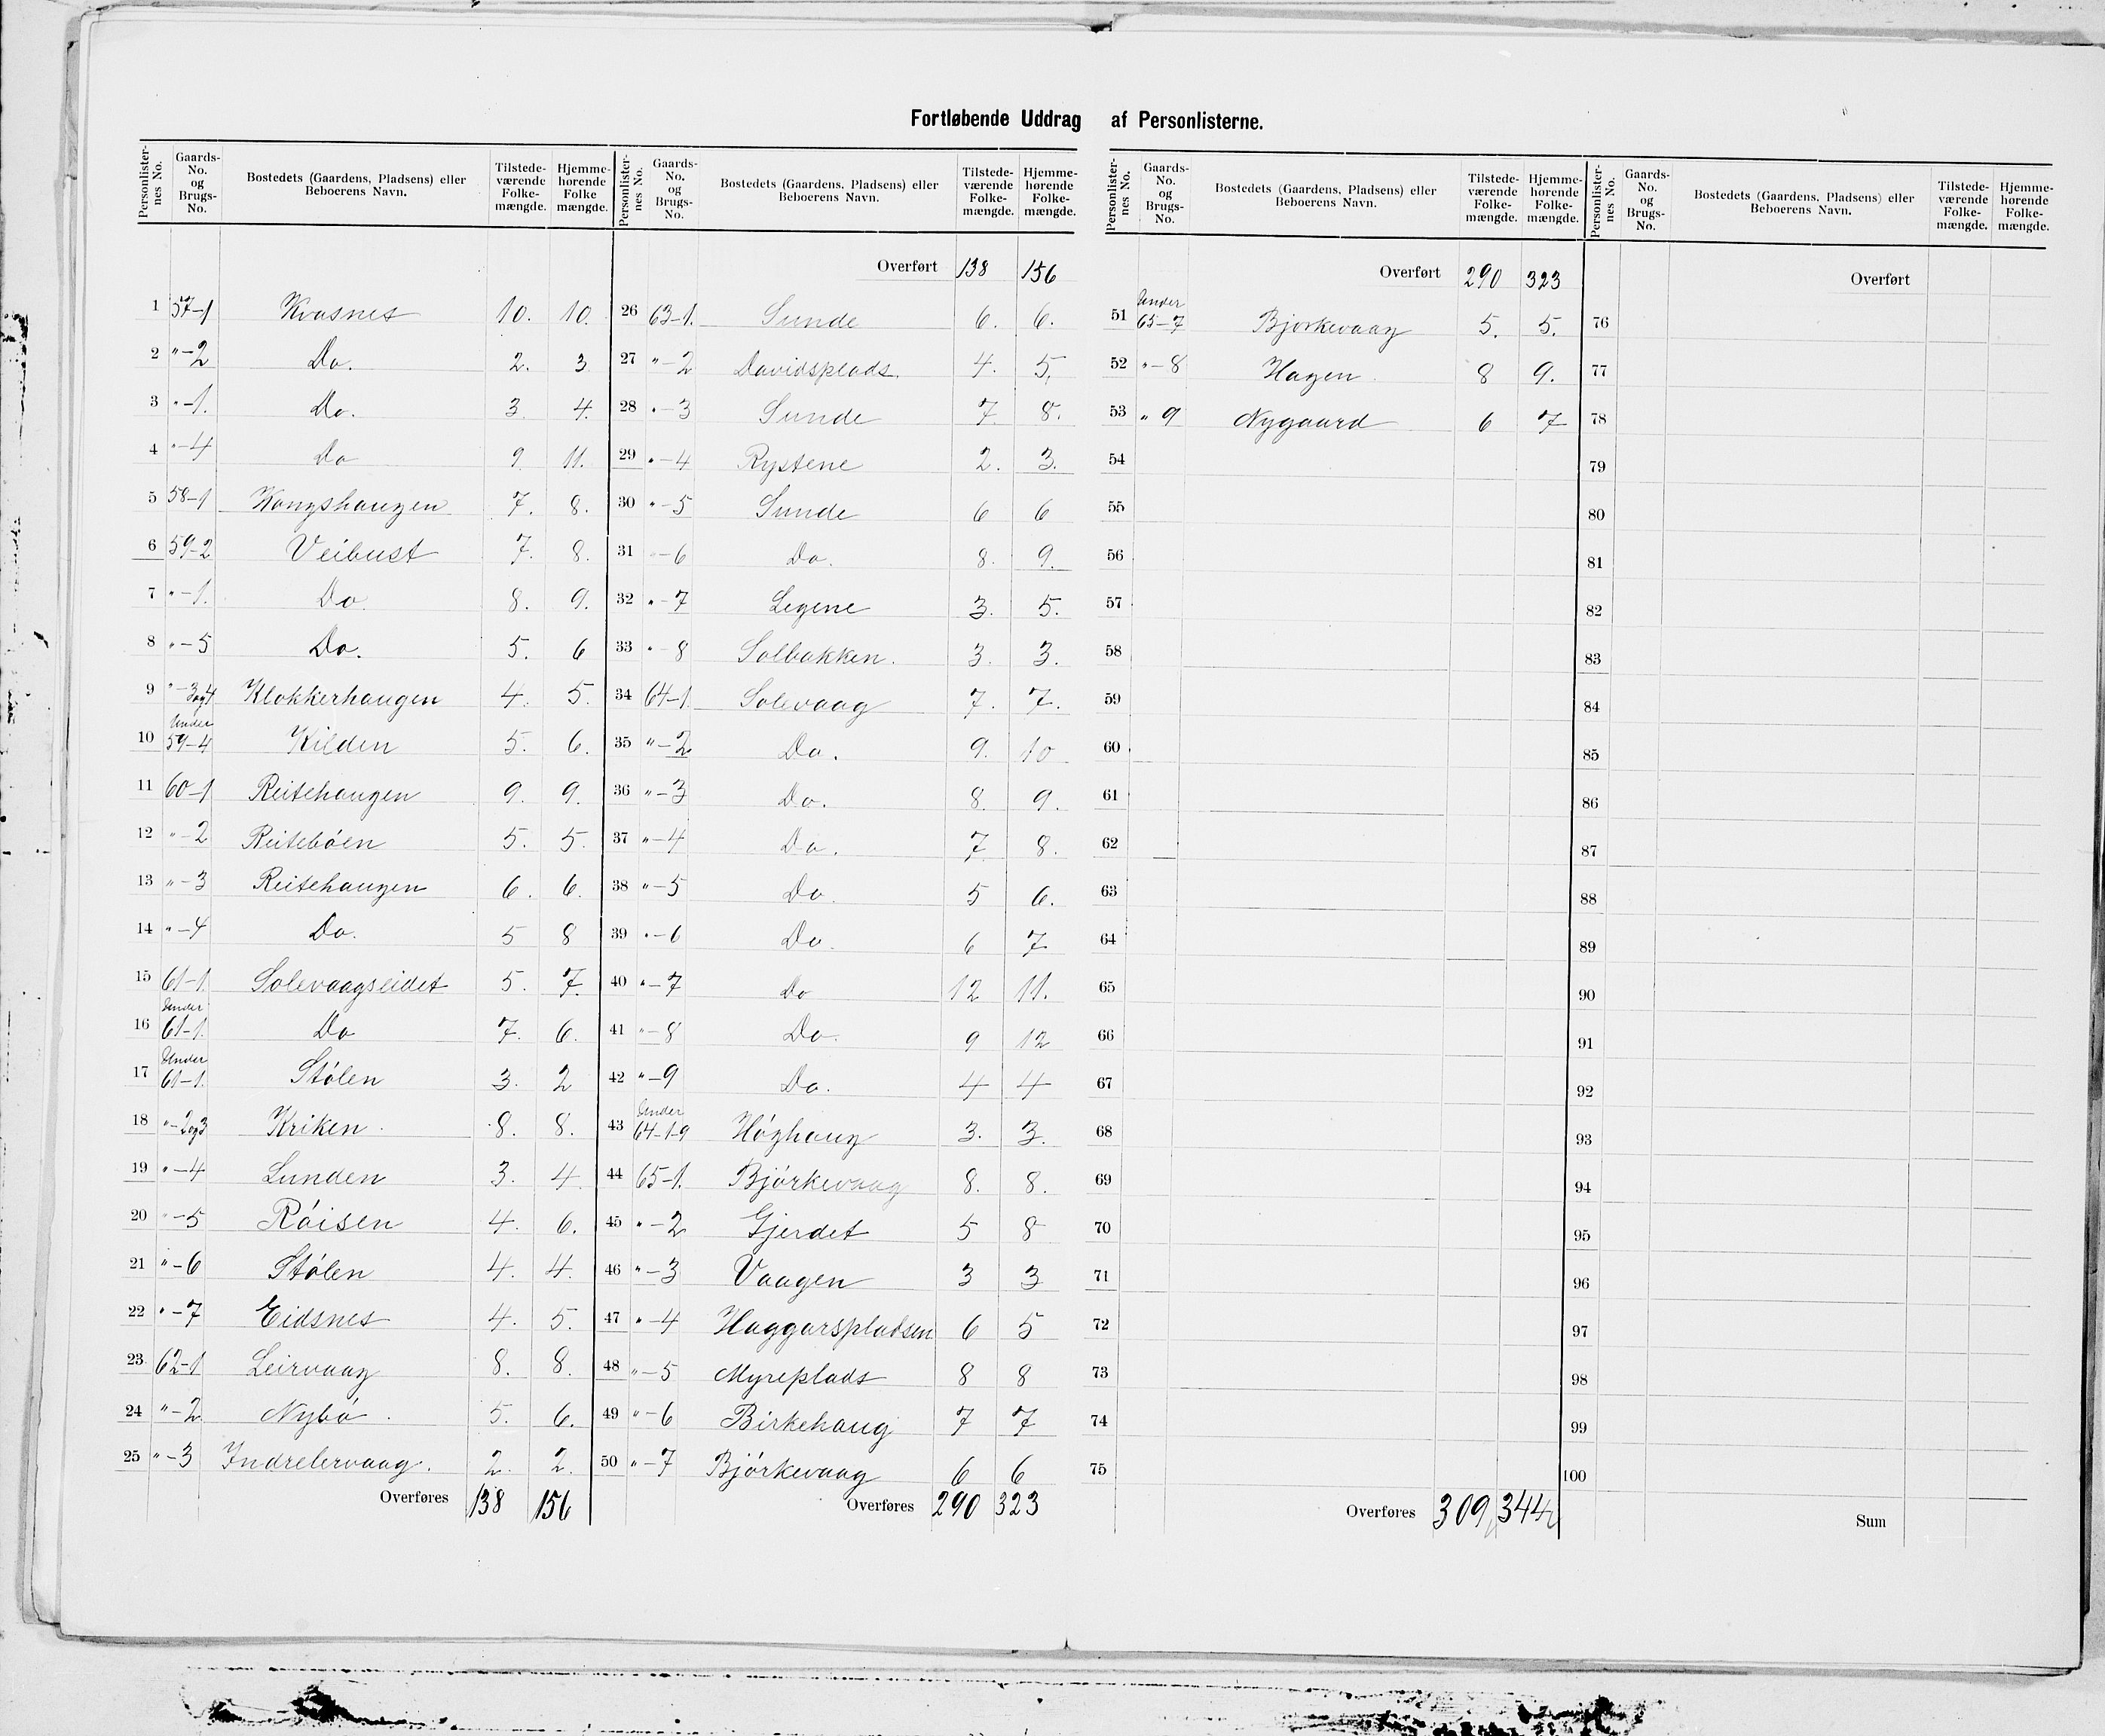 Fortløbende Uddrag af Personlisterne.
Personlister-nes No. Gaards-No. og Brugs-No. Bostedets (Gaardens, Pladsens) eller Beboerens Navn. Tilstede-værende Folke-mængde. Hjemme-hørende Folke mængde.
1 57-1 Kvasnes 10. 10.
2 "-2 Do. 2. 3
3 "-1. Do. 3. 4.
4 "-4 Do 9 11.
5 58-1 Kongshaugen 7. 8.
6 59-2 Veibust 7. 8.
7 "-1. Do. 8. 9.
8 "-5 Do. 5. 6
9 "-3og4 Klokkerhaugen 4. 5.
10 Under 59-4 Kilden 5. 6.
11 60-1 Reitehaugen 9. 9.
12 "-2 Reitebóen 5. 5.
13 "-3 Reitehaugen 6. 6.
14 "-4 Do. 5 8
15 61-1. Solevaagseidet 5. 7.
16 Under 61-1. Do 7. 6.
17 Under 61-1. Stólen 3. 2
18 "-2og3 Kriken. 8. 8.
19 "-4 Lunden 3. 4.
20 "-5 Róisen 4. 6.
21 "-6 Stólen 4. 4.
22 "-7 Eidsnes 4. 5.
23 62-1 Leirvaag 8. 8.
24 "-2 Nybó. 5. 6.
25 "-3 Indrelervaag. 2. 2.
Overføres 138 156
Personlister-nes No. Gaards-No. og Brugs-No. Bostedets (Gaardens, Pladsens) eller Beboerens Navn. Tilstede-værende Folke-mængde. Hjemme-hørende Folke-mængde.
Overført 138 156
26 63-1. Sunde 6. 6.
27 "-2 Davidsplads. 4. 5.
28 "-3 Sunde 7 8.
29 "-4 Rystene 2. 3.
30 "-5 Sunde 6 6
31 "-6 Do. 8. 9.
32 "-7 Legene 3. 5.
33 "-8 Solbakken. 3. 3.
34 64-1. Solevaag 7. 7.
35 "-2 Do. 9. 10
36 "-3 Do. 8. 9.
37 "-4 Do. 7. 8.
38 "-5 Do. 5 6.
39 "-6 Do. 6 7
40 "-7 Do 12 11.
41 "-8 Do. 9 12
42 "-9 Do. 4 4
43 Under 64-1-9 Hóghaug 3. 3.
44 65-1. Bjórkevaag 8. 8.
45 "-2 Gjerdet 5 8
46 "-3 Vaagen 3 3
47 "-4 Haggarspladsen 6 5
48 "-5 Myreplads 8 8
49 "-6 Birkehaug 7 7
50 "-7 Bjórkevaag 6 6
Overføres 290 323
Personlister-nes No. Gaards-No. og Brugs-No. Bostedets (Gaardens, Pladsens) eller Beboerens Navn. Tilstede-værende Folke-mængde. Hjemme-hørende Folke-mængde.
Overført 290 323
51 Under 65-7 Bjorkevaag 5. 5.
52 "-8 Hagen. 8 9.
53 " 9 Nygaard 6 7
54
55
56
57
58
59
60
61
62
63
64
65
66
67
68
69
70
71
72
73
74
75
Overføres 309 344
Personlister-nes No. Gaards-No. og Brugs-No. Bostedets (Gaardens, Pladsens) eller Beboerens Navn. Tilstede-værende Folke-mængde. Hjemme-hørende Folke-mængde.
Overført
76
77
78
79
80
81
82
83
84
85
86
87
88
89
90
91
92
93
94
95
96
97
98
99
100
Sum